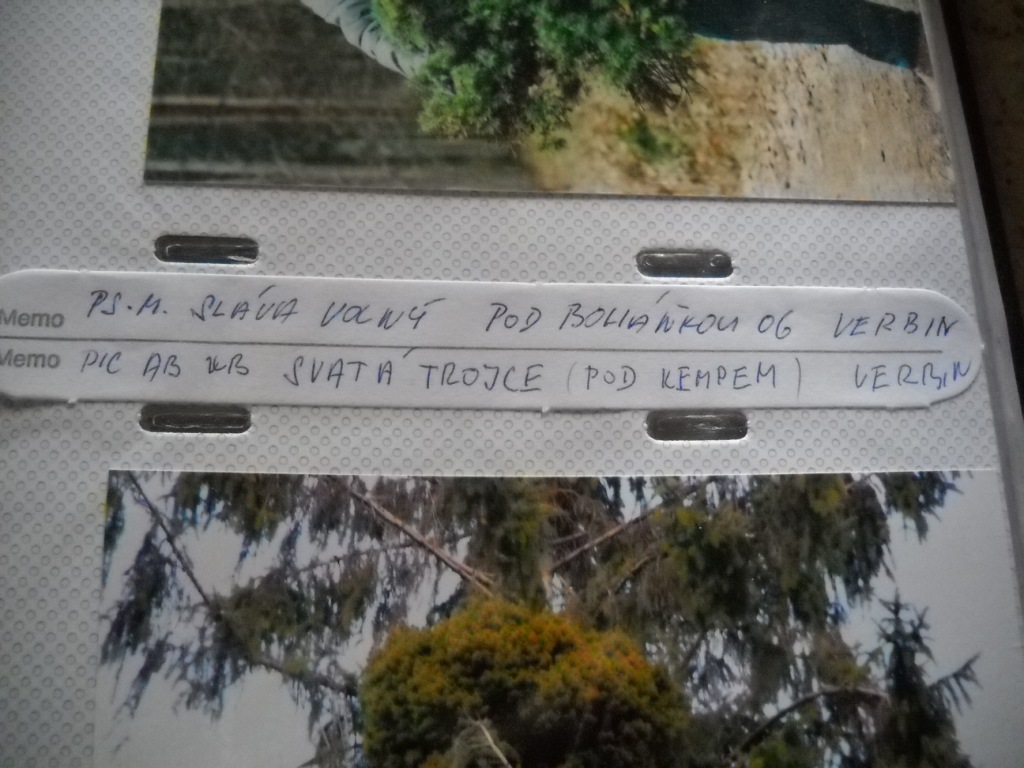 Memo PS.M. SLÁVA VOLNÝ POD BOLIÁŇKOU 06 VERBIN
Memo PIC AB SVATÁ TROJCE (POD KEMPEM) VERBIN